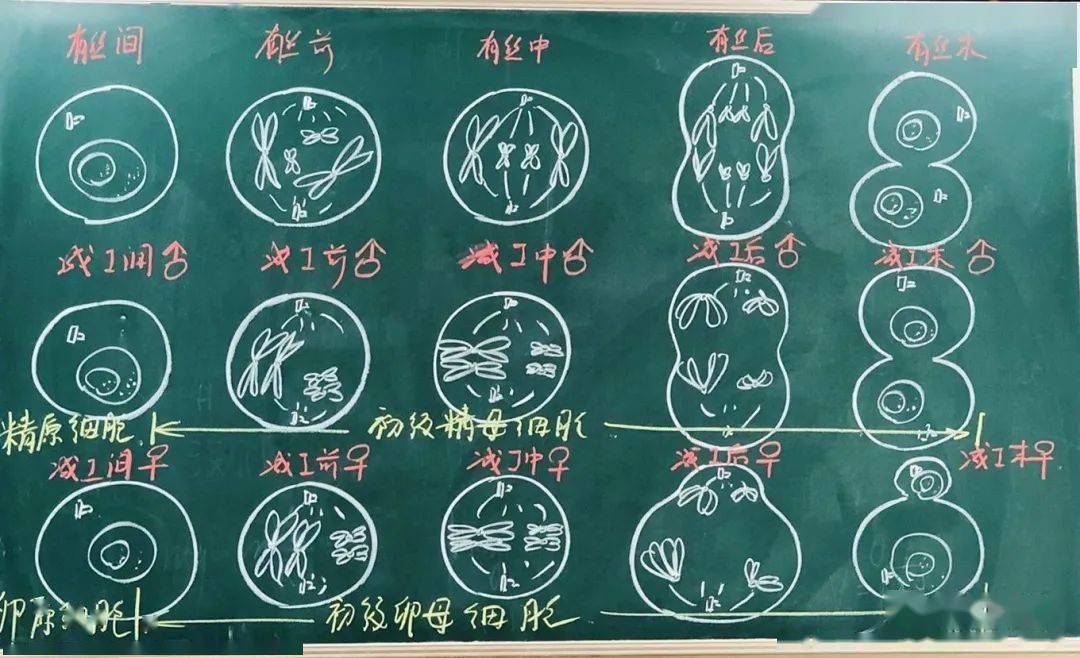 有丝间 有丝前 有丝中 有丝后 有丝末
减I间♂ 减I前♂ 减I中♂ 减I后♂ 减I末♂
精原细胞 初级精母细胞
减I间♀ 减I前♀ 减I中♀ 减I后♀ 减I末♀
卵原细胞 初级卵母细胞